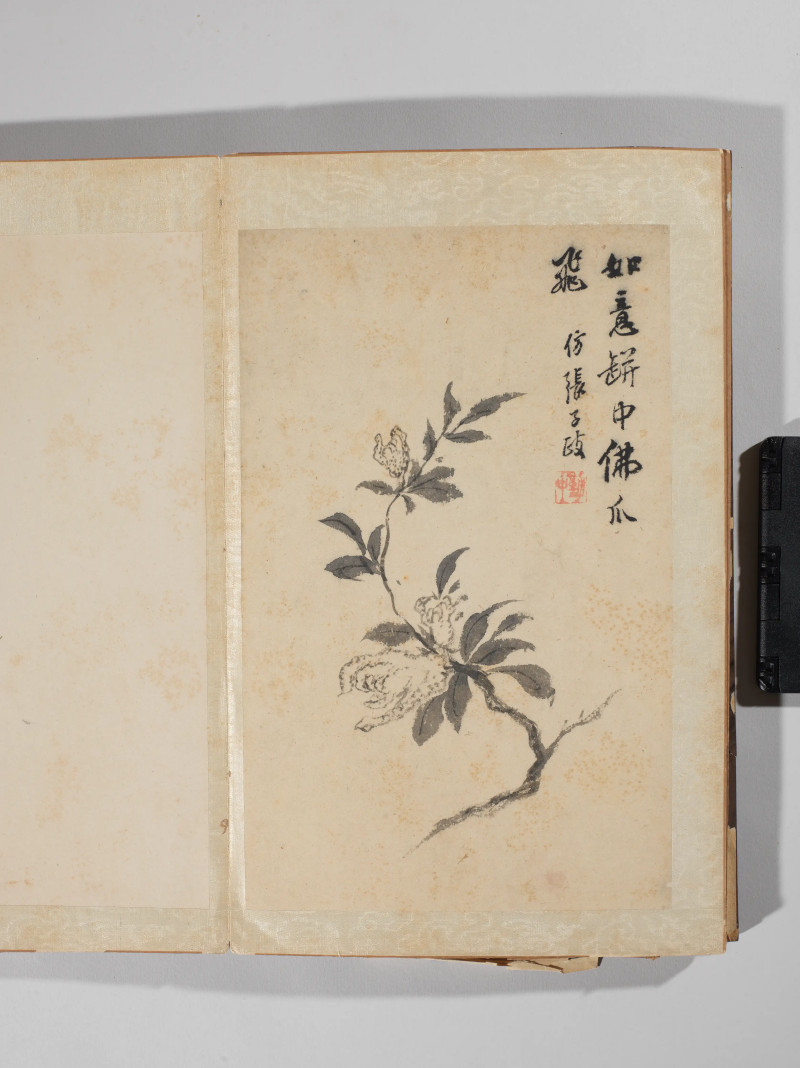 如意缾中佛爪
飛
仿張子政
9